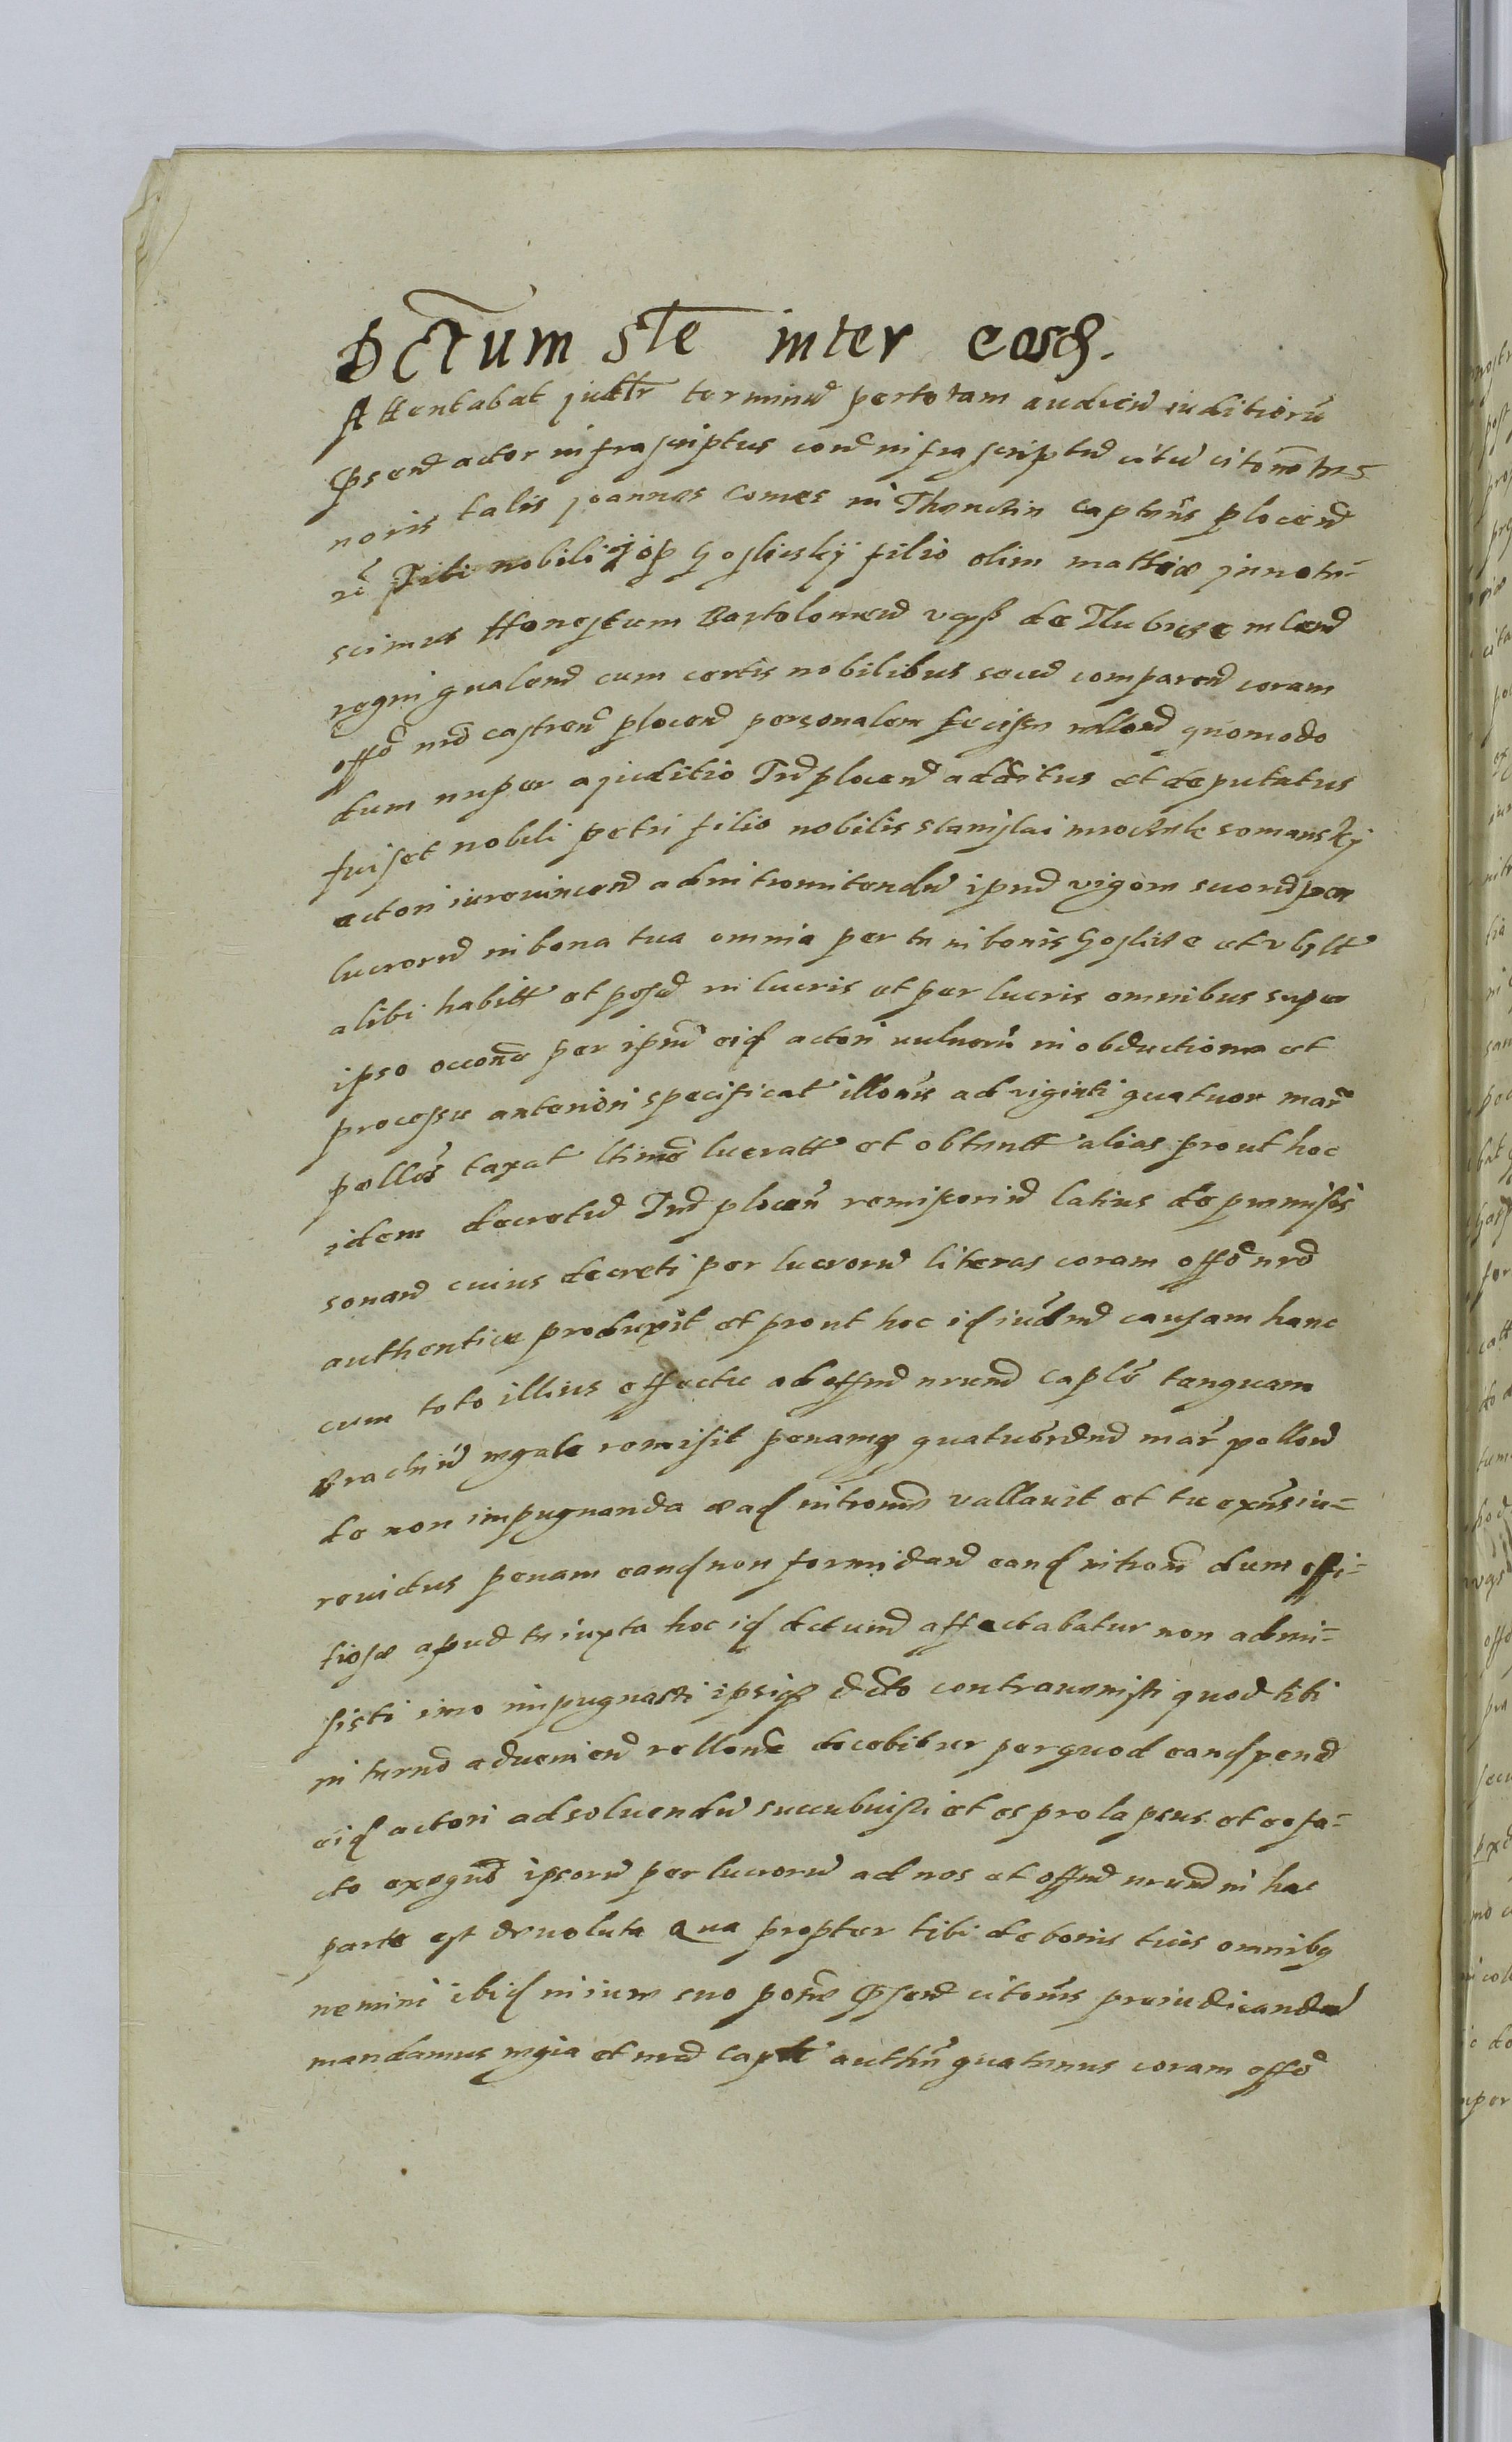 Dctum ste inter eosd.
Attentabat judtr terminu per totam audien iuditioru
Psend actor infrascriptus con infrascriptu citu citonis te-
noris talis joannes Comes in Thenczin captns plocen
re Tibi nobili jop Goslicskÿ filio olim mathiæ jnnote-
scimus Honestum Bartolomeu de Tlubicze mlem
regni gnalem cum certis nobilibus secu comparen coram
offo nro castren plocen personalem fecisse rellom quomodo
dum nuper a juditio Trl plocen additus et deputatus
fuiset nobili petri filio nobilis stanislai mrochnk somanskÿ
actori iurevincen ad intromitendu ipm vigore suoru per
lucroru in bona tua omnia per te in bonis Goslicze et vbilt
alibi habitt et posess in lucris et per lucris omnibus super
ipso occone per ipm eid actori vulneru in obductione et
processu anteriori specificat illonis ad viginti quatuor mar
pellos taxat ltime lucratt et obtentt alias prout hoc
idem decretu Trl plocen remisoriu latius de premissis
sonan cuius decreti per lucroru literas coram offo nro
authentice produxit et prout hoc id iudm causam hanc
cum toto illius effectu ad offm nrum caple tanquam
Brachiu regale remisit penamq quatuordem mar pellou
de non impugnanda ead intromis vallavit et tu exns iu-
revictus penam eand non formidan eand introm dum offi-
tiose apud te iuxta hoc id dctum affectabatur non admi-
sisti imo impugnasti ipsiq dcto contravenisti quod tibi
in termo advenien rellone docebitur per quod eand pena
eid actori ad solvendu succubuisti et es prolapsus et eo fa-
cto exeqno ipsoru per lucroru ad nos et offm nrum in hac
parte est devoluta Qua propter tibi de bonis tuis omnibq
nemini ibid in iure suo posse Psend citonis preiudicando
mandamus regia et nra capli authe quatenus coram offo